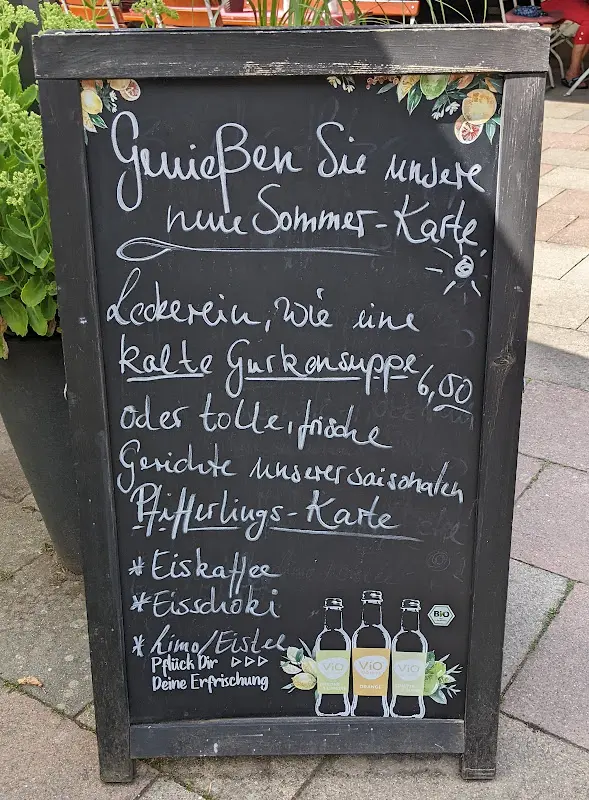 Genießen Sie unsere
neue Sommer-Karte
Leckerein, wie eine
kalte Gurkensuppe 6,50
oder tolle, frische
Gerichte unserer saisonalen
Pfifferlings-Karte
* Eiskaffee
* Eisschoki
* Limo/Eistee
Pflück Dir
Deine Erfrischung
BIO
ViO ViO ViO
ORANGE